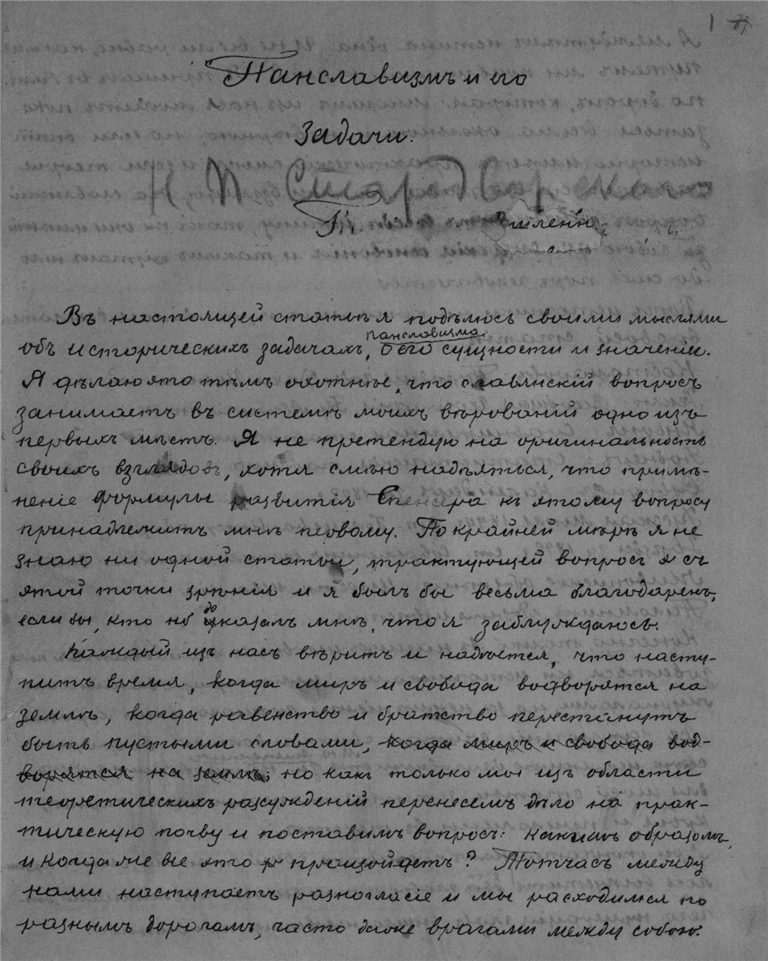 1
Панславизмъ и его
задачи.
Н П Стародворскаго
Въ настоящей статьѣ я подѣлюсь своими мыслями
панславизма
объ историческихъ задачахъ, о его сущности и значеніи.
Я дѣлаю это тѣмъ охотнѣе, что славянскій вопросъ
занимаетъ въ системѣ моихъ вѣрованій одно изъ
первыхъ мѣстъ. Я не претендую на оригинальность
своихъ взглядовъ, хотя смѣю надѣяться, что примѣ-
неніе формулы развитія Спенсера къ этому вопросу
принадлежитъ мнѣ первому. По крайней мѣрѣ я не
знаю ни одной статьи, трактующей вопросъ съ
этой точки зрѣнія и я былъ бы весьма благодаренъ,
если бы, кто нб доказалъ мнѣ, что я заблуждаюсь.
Каждый изъ насъ вѣритъ и надѣется, что насту-
питъ время, когда миръ и свобода водворятся на
землѣ, когда равенство и братство перестанутъ
быть пустыми словами, когда миръ и свобода вод-
ворятся на землѣ; но какъ только мы изъ области
теоретическихъ разсужденій перенесемъ дѣло на прак-
тическую почву и поставимъ вопросъ: какимъ образомъ,
и когда же все это произойдетъ? Тотчасъ между
нами наступаетъ разногласіе и мы расходимся по
разнымъ дорогамъ, часто даже врагами между собою.